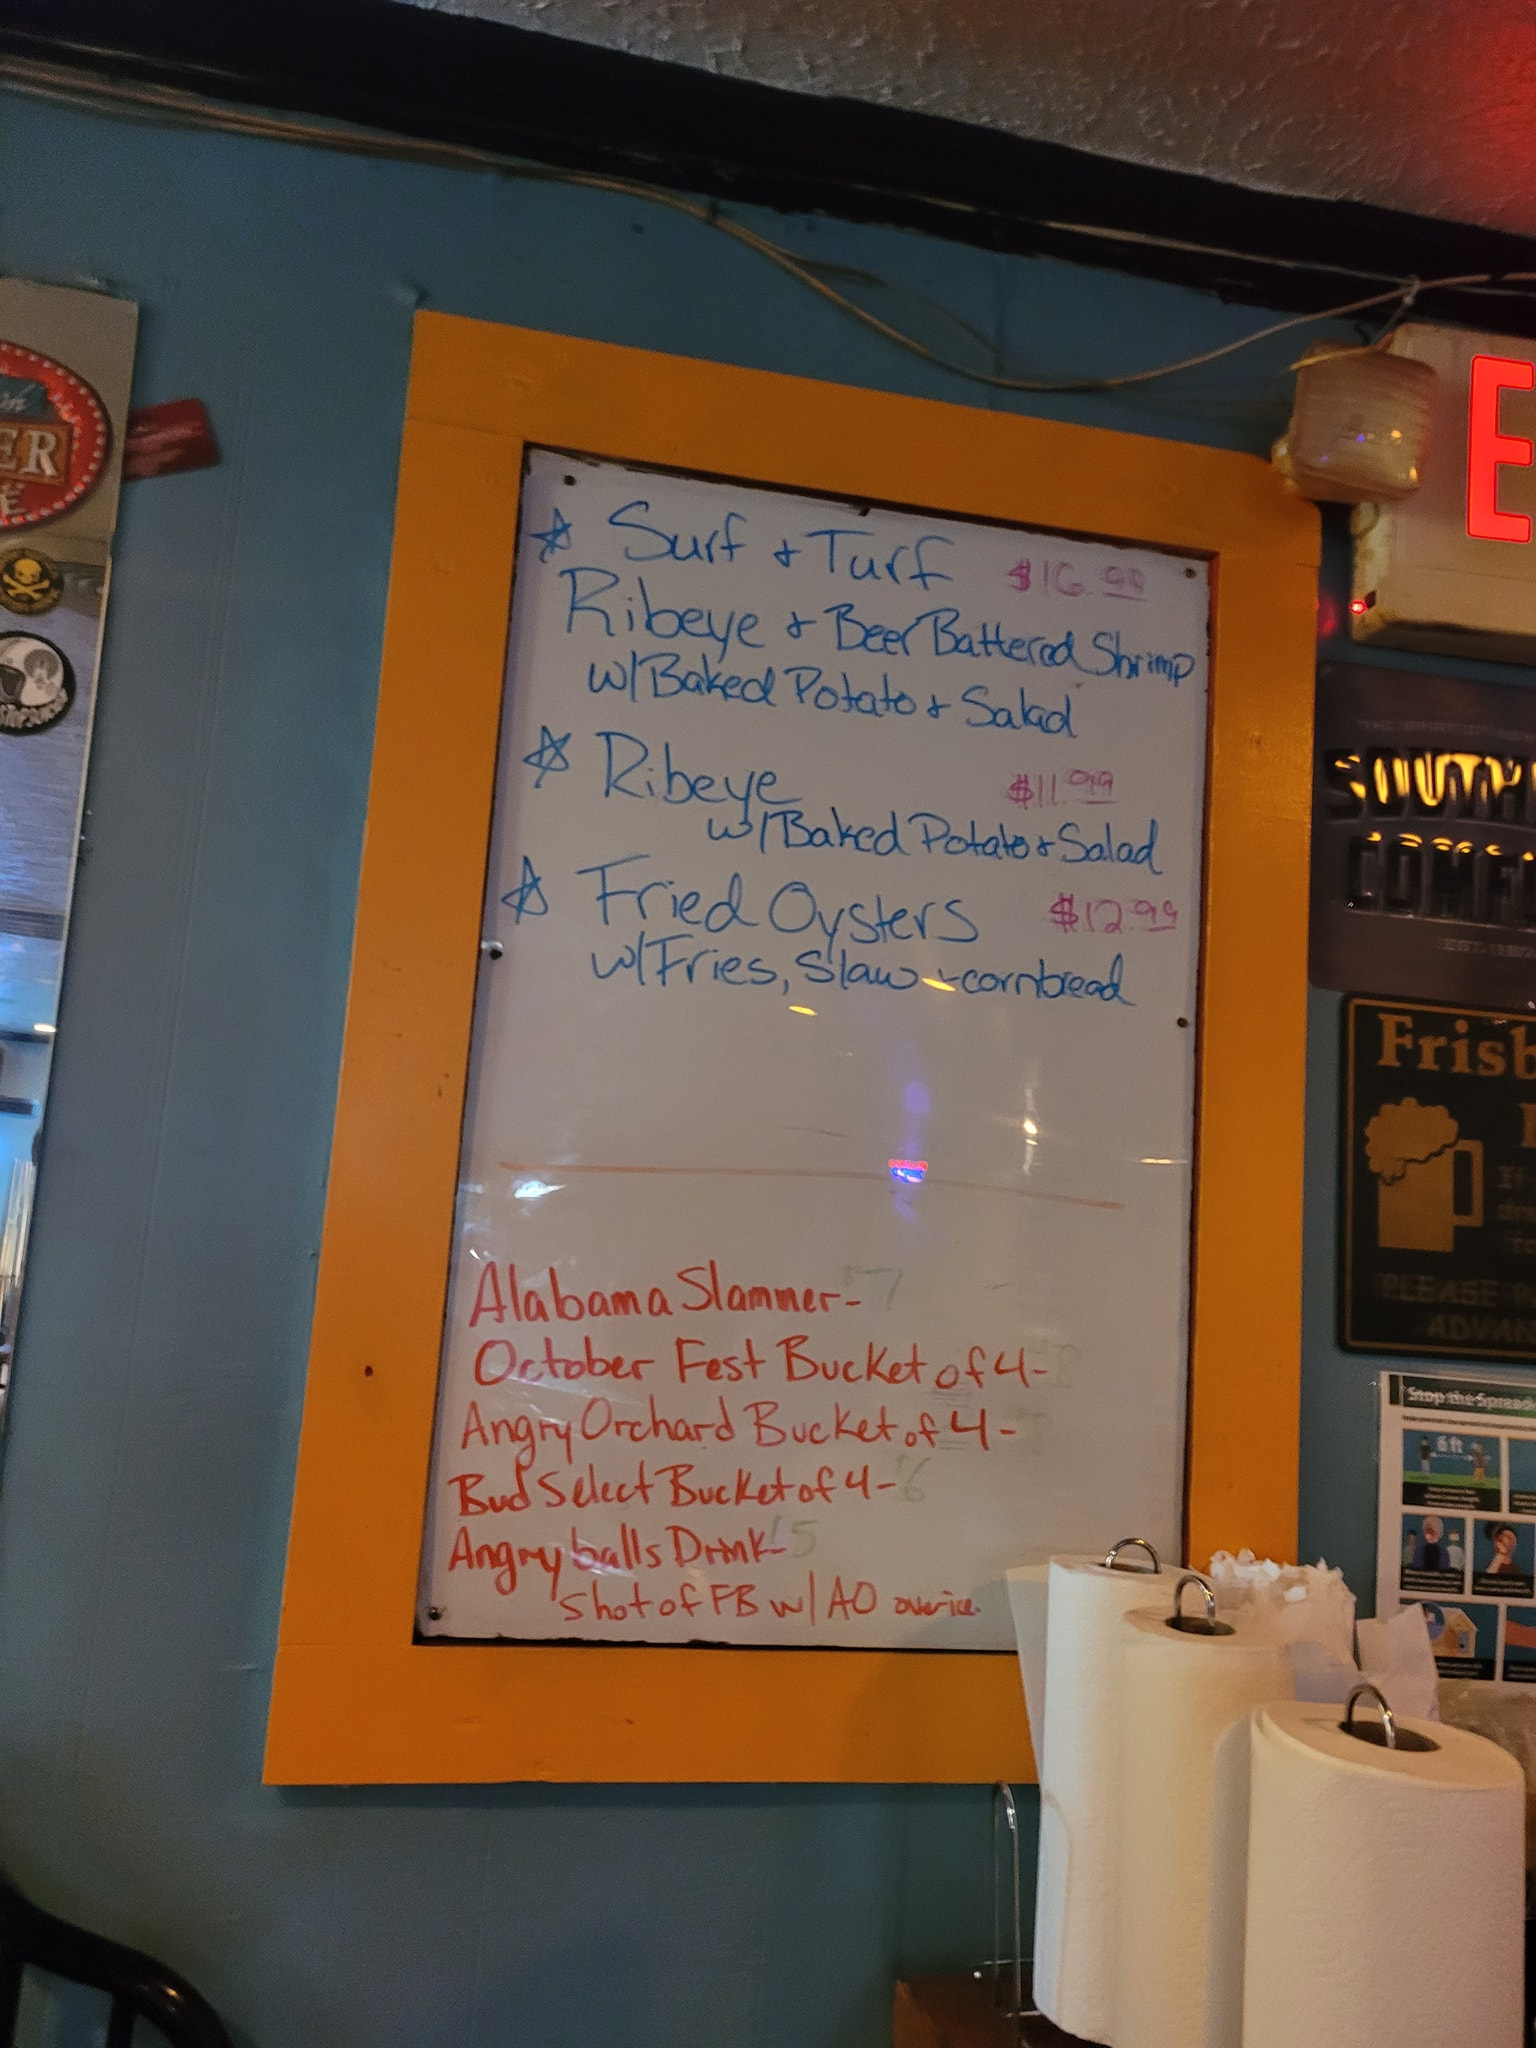 ☆ Surf + Turf $16.99
Ribeye + Beer Battered Shrimp
w/Baked Potato + Salad
☆ Ribeye $11.99
w/Baked Potato + Salad
☆ Fried Oysters $12.99
w/Fries, Slaw + cornbread
Alabama Slammer- 7
October Fest Bucket of 4-
Angry Orchard Bucket of 4-
Bud Select Bucket of 4- 6
Angry balls Drink- 5
Shot of FB w/ AO over ice.
ER
E
SOUTH
COMF
Frisb
If
PLEASE
ADVAN
Stop the Spread
6 ft